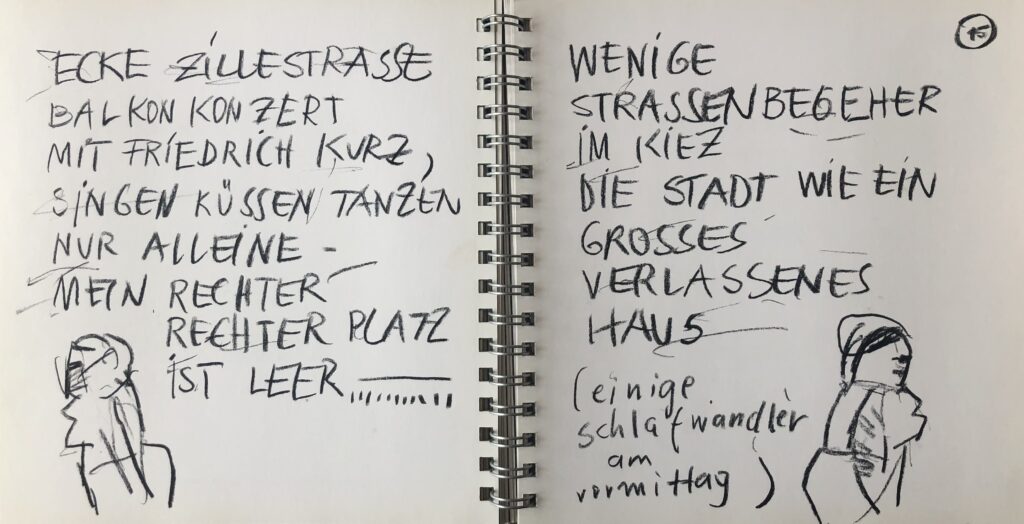 ECKE ZILLESTRASSE
BALKONKONZERT
MIT FRIEDRICH KURZ,
SINGEN KÜSSEN TANZEN
NUR ALLEINE –
MEIN RECHTER
RECHTER PLATZ
IST LEER
15
WENIGE
STRASSENBEGEHER
IM KIEZ
DIE STADT WIE EIN
GROSSES
VERLASSENES
HAUS
(einige
schlafwandler
am
vormittag)